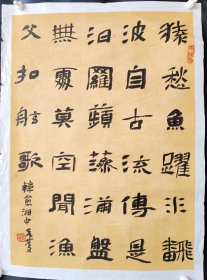 猿愁魚躍水飜
波自古流傳是
汨羅蘋藻滿盤
無處奠空聞漁
父扣舷歌
韓愈湘中